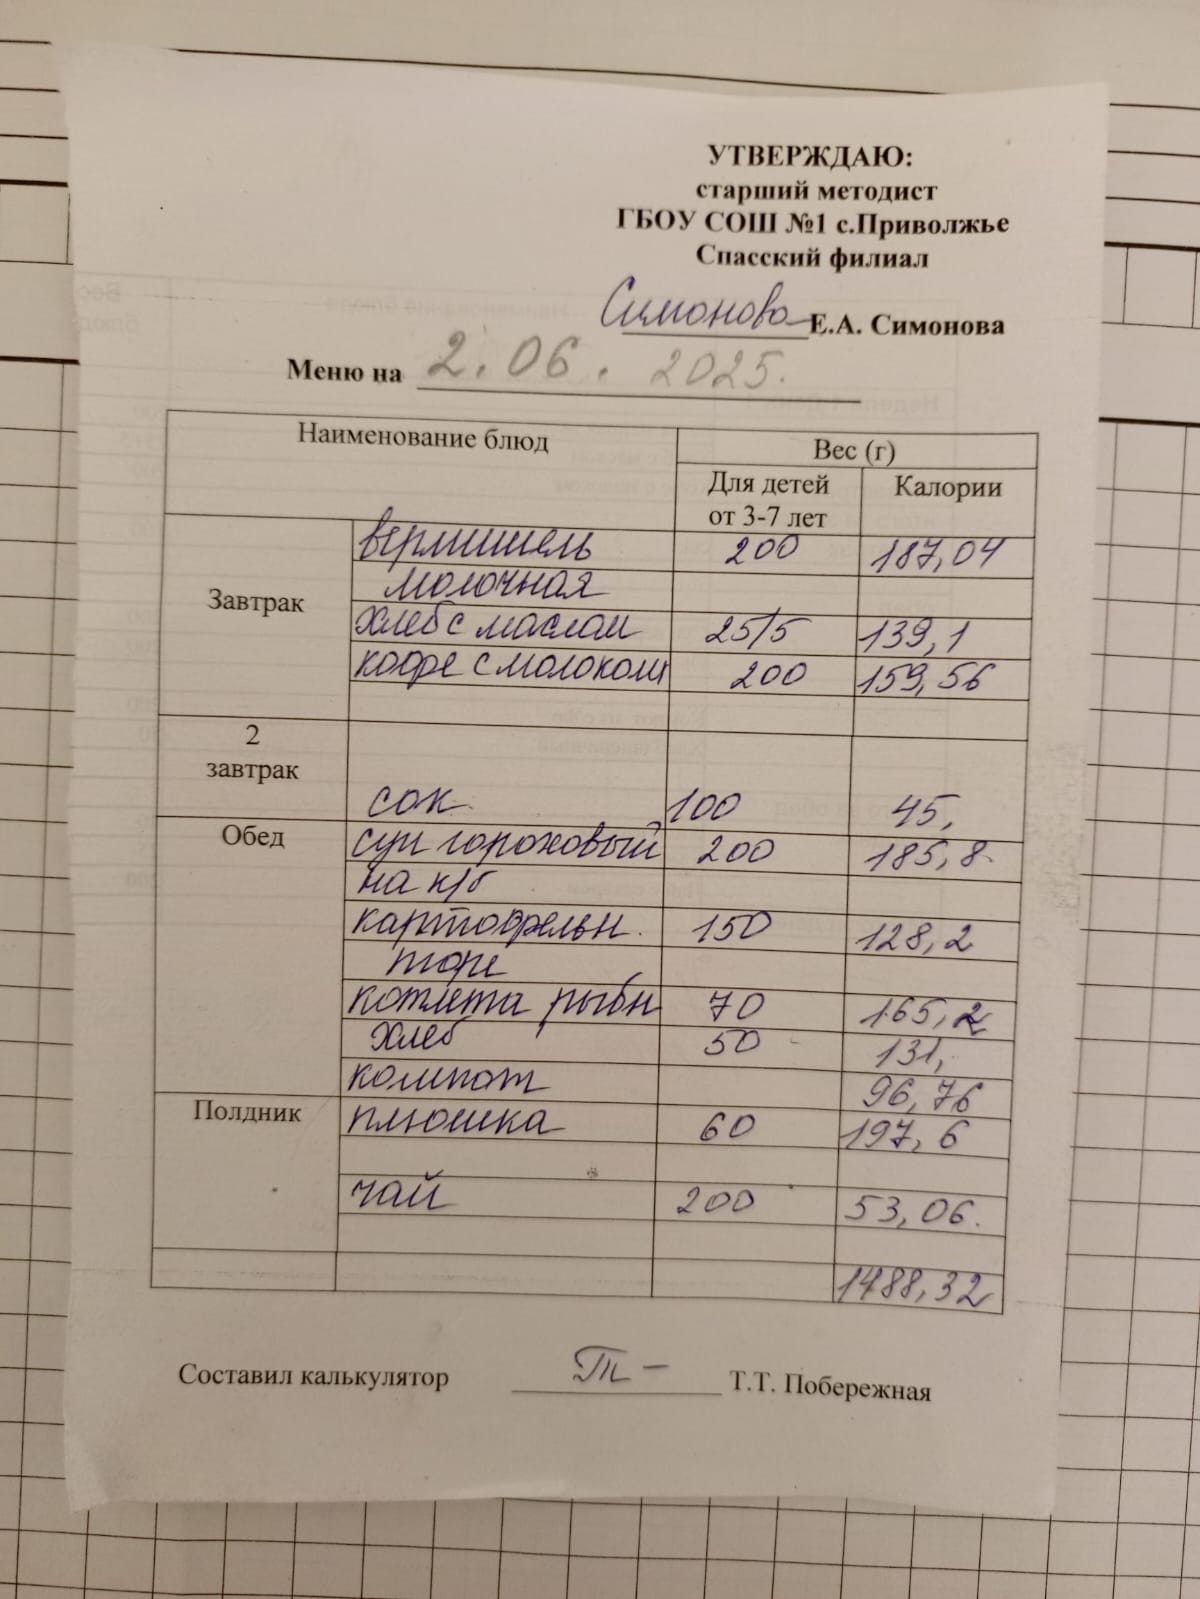 УТВЕРЖДАЮ:
старший методист
ГБОУ СОШ №1 с.Приволжье
Спасский филиал
Симонова Е.А. Симонова
Меню на 2.06. 2025.
Наименование блюд Вес (г)
Для детей от 3-7 лет Калории
Завтрак
вермишель 200 187,04
молочная
хлеб с маслом 25/5 139,1
кофе с молоком 200 159,56
2 завтрак
сок 100 45,
Обед
суп гороховый 200 185,8.
на к/б
картофельн. 150 128,2
пюре
котлета рыбн 70 165,2
хлеб 50 131,
компот 96,76
Полдник
плюшка 60 197,6
чай 200 53,06.
1488,32
Составил калькулятор Т.Т. Побережная